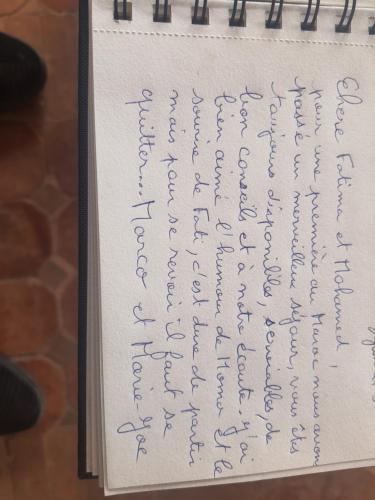 Chere Fatima et Mohamed,
pour une première au Maroc nous avons
passé un merveilleux séjour, vous êtes
toujours disponibles, serviables, de
bon conseils et a notre écoute. J'ai
bien aimé l'humour de Momo et le
sourire de Fati, c'est dure de partir
mais pour se revoir il faut se
quitter... Marco et Marie-Joe